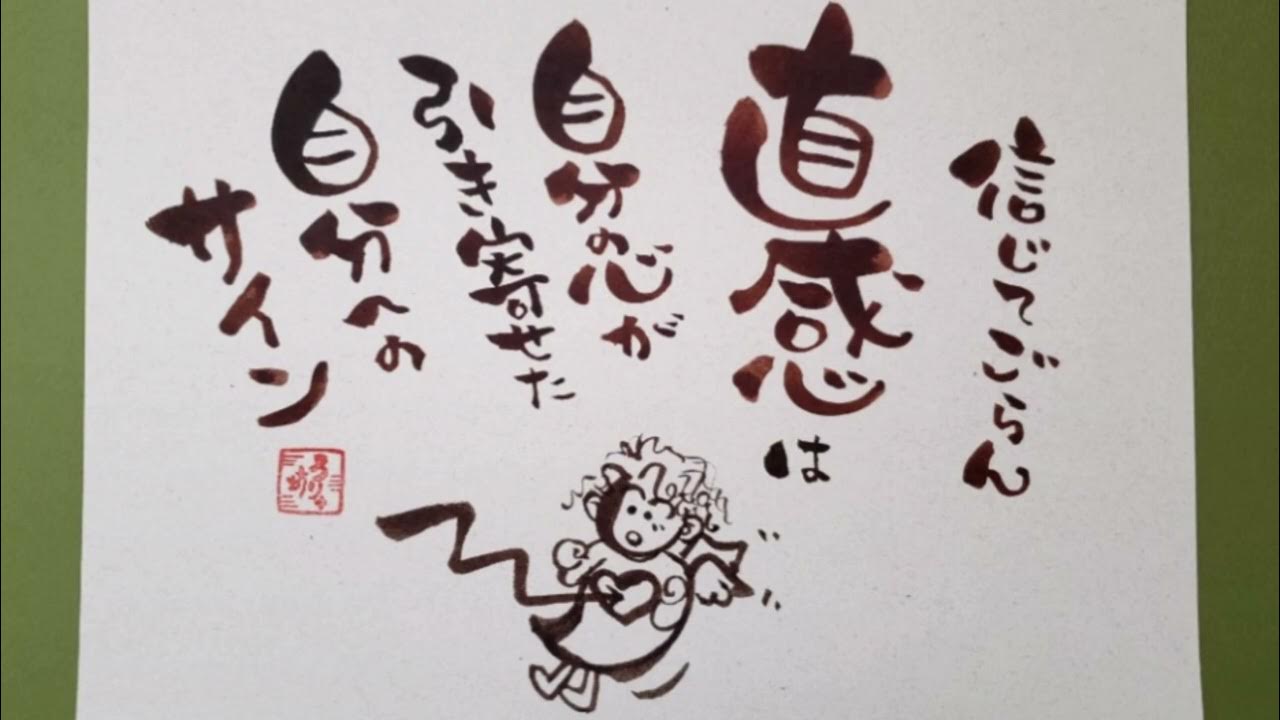 信じてごらん
直感は
自分の心が
引き寄せた
自分への
サイン